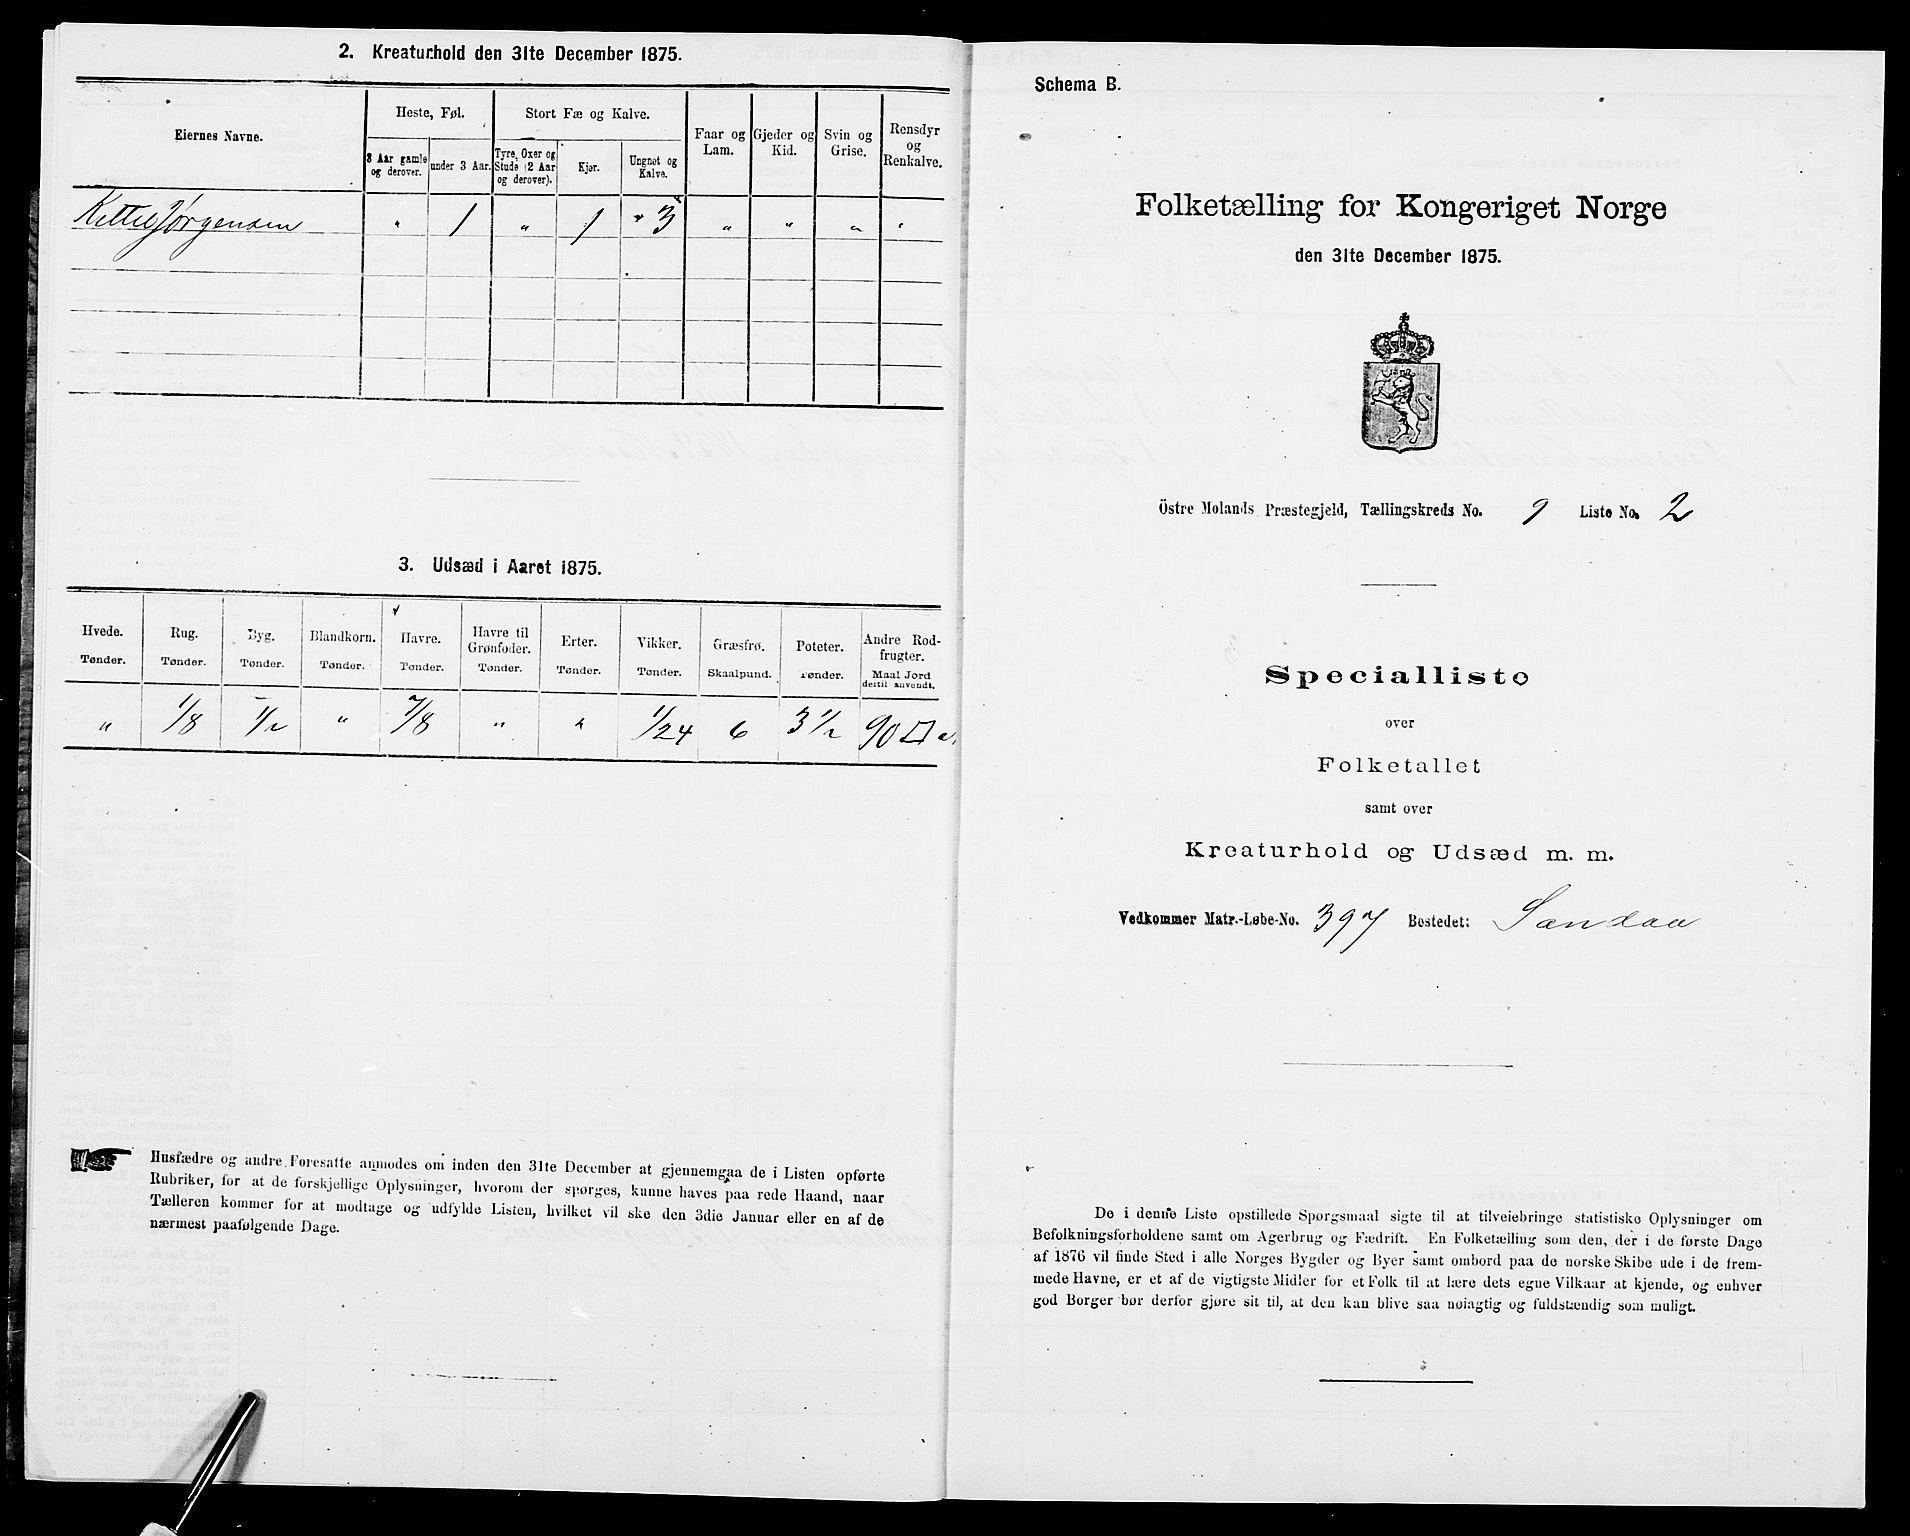 2. Kreaturhold den 31te December 1875.
Eiernes Navne.
Heste, Føl.
3 Aar gamle og derover.
under 3 Aar.
Stort Fæ og Kalve.
Tyre, Oxer og Stude (2 Aar og derover).
Kjør.
Ungnøt og Kalve.
Faar og Lam.
Gjeder og Kid.
Svin og Grise.
Rensdyr og Renkalve.
Kittil Jørgensen " 1 " 1 " 3 " " " "
3. Udsæd i Aaret 1875.
Hvede. Tønder.
Rug. Tønder.
Byg. Tønder.
Blandkorn. Tønder.
Havre. Tønder.
Havre til Grønfoder. Tønder.
Erter. Tønder.
Vikker. Tønder.
Græsfrø. Skaalpund.
Poteter. Tønder.
Andre Rodfrugter. Maal Jord dertil anvendt.
" 1/8 1/2 " 7/8 " " 1/24 6 3 1/2 90 □ a.
Husfædre og andre Foresatte anmodes om inden den 31te December at gjennemgaa de i Listen opførte
Rubriker, for at de forskjellige Oplysninger, hvorom der spørges, kunne haves paa rede Haand, naar
Tælleren kommer for at modtage og udfylde Listen, hvilket vil ske den 3die Januar eller en af de
nærmest paafølgende Dage.
Schema B.
Folketælling for Kongeriget Norge
den 31te December 1875.
Östre Molands Præstegjeld, Tællingskreds No. 9 Liste No. 2
Specialliste
over
Folketallet
samt over
Kreaturhold og Udsæd m. m.
Vedkommer Matr.-Løbe-No. 397 Bostedet: Sandaa
De i denne Liste opstillede Spørgsmaal sigte til at tilveiebringe statistiske Oplysninger om
Befolkningsforholdene samt om Agerbrug og Fædrift. En Folketælling som den, der i de første Dage
af 1876 vil finde Sted i alle Norges Bygder og Byer samt ombord paa de norske Skibe ude i de frem-
mede Havne, er et af de vigtigste Midler for et Folk til at lære dets egne Vilkaar at kjende, og enhver
god Borger bør derfor gjøre sit til, at den kan blive saa nøiagtig og fuldstændig som muligt.